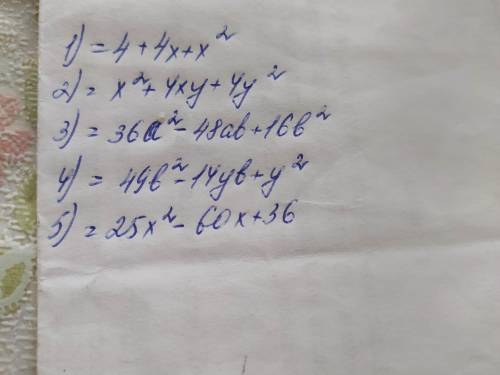 1) = 4 + 4x + x²
2) = x² + 4xy + 4y²
3) = 36a² - 48ab + 16b²
4) = 49b² - 14yb + y²
5) = 25x² - 60x + 36